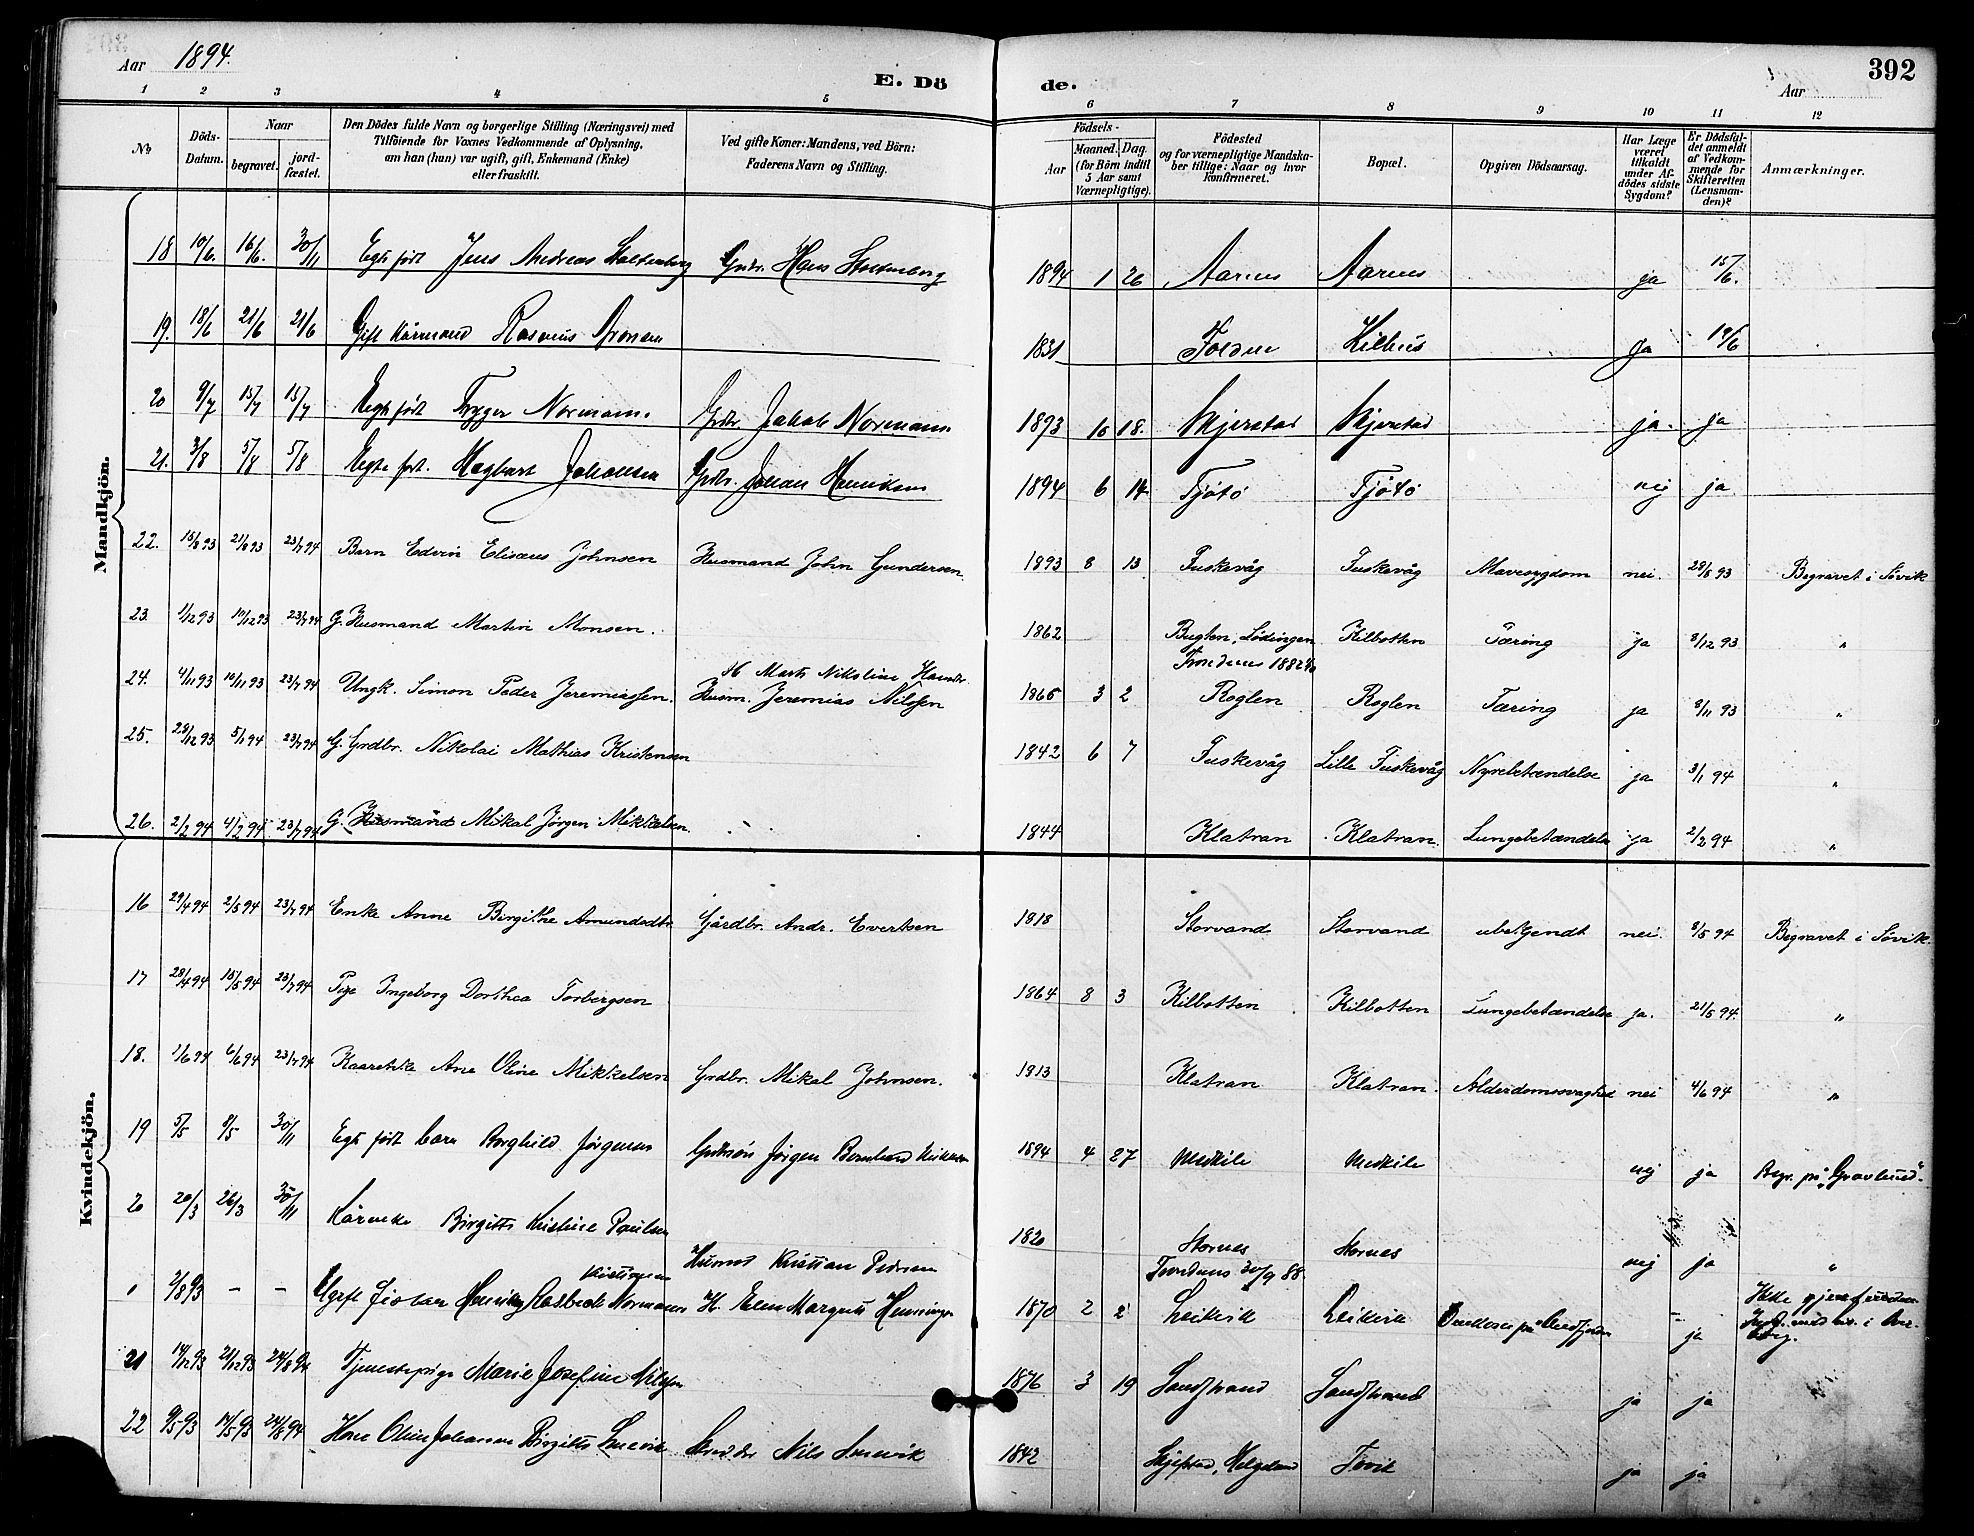 Aar 1894.
E. Dö
de.
Aar
392
1 2 3 4 5 6 7 8 9 10 11 12
No
Döds-Datum.
Naar
begravet.
jord-fæstet.
Den Dödes fulde Navn og borgerlige Stilling (Næringsvei) med
Tilföiende for Voxnes Vedkommende af Oplysning,
om han (hun) var ugift, gift, Enkemand (Enke)
eller fraskilt.
Ved gifte Koner: Mandens, ved Börn:
Faderens Navn og Stilling.
Födsels-
Aar
Maaned. Dag.
(for Börn indtil
5 Aar samt
Værnepligtige).
Födested
og for værnepligtige Mandska-
ber tillige: Naar og hvor
konfirmeret.
Bopæl.
Opgiven Dödsaarsag.
Har Læge
været
tilkaldt
under Af-
dödes sidste
Sygdom?
Er Dödsful-
det anmeldt
af Vedkom-
mende for
Skifteretten
(Lensman-
den)?
Anmærkninger.
Mandkjön.
18 10/6. 16/6. 30/11 Egte født Jens Andreas Stoltenberg Grdbr. Hans Stoltenberg 1894 1 26 Aarnes Aarnes ja 15/6.
19. 18/6 21/6 21/6 Gift Kårmand Rasmus Aronsen 1831 Folden Kilhus ja 19/6
20 9/7 15/7 15/7 Ægte født Trygve Normann. Grdbr. Jakob Normann 1893 10 18. Skjerstad Skjerstad ja. ja
21. 3/8 5/8 5/8 Ægte født. Hagbart Johansen Grdbr. Johan Henriksen 1894 6 14 Tjötö Tjötö nej ja
22. 15/8 93 21/8 93 23/7 94 Barn Edvin Elisæus Johnsen Husmand John Gundersen 1893 8 13 Fuskevåg Fuskevåg Mavesygdom nei. 28/8 93 Begravet i Søvik
23. 1/12 93 10/12 93 23/7 94 G. Husmand Martin Monsen. 1862 Lødingen Kilbotten Tæring ja 8/12 93 "
24. 4/11 93 10/11 93 23/7 94 Ungk. Simon Peder Jeremiassen. Husm. Jeremias Nilssen 1865 3 2 Trondenes 1882 Roglen Roglen Tæring ja 8/11 93 "
25. 28/12 93 5/1 94 23/7 94 G. Grdbr. Nikolai Mathias Kristensen 1842 6 7 Fuskevåg Lille Fuskevåg Nyrebetændelse ja 3/1 94 "
26. 2/2 94 4/2 94 23/7 94 G. Husmand Mikal Jørgen Mikkelsen. 1844 Klatran Klatran. Lungebetændelse ja 2/2 94 "
Kvindekjön.
16 29/4 94 2/5 94 23/7 94 Enke Anne Birgithe Amundsdtr. Gårdbr. Andr. Evertsen 1818 Storvand Storvand ubekjendt nei. 8/5 94 Begravet i Søvik.
17 28/4 94 15/5 94 23/7 94 Pige Ingeborg Dorthea Torbergsen 1864 8 3 Kilbotten Kilbotten Lungebetændelse ja. 21/5 94. "
18. 1/6 94 6/6 94 23/7 94 Ane Oline Mikkelsen Grdbr. Mikal Johnsen. 1813 Klatran Klatran. Alderdomssvaghed nei 4/6 94 "
19 5/5 8/5 30/11 Egte født barn Borghild Jørgensen Jörgen Bernhard 1894 4 27 Medkile Medkile nej ja Begr. på "Gravlund".
20 20/3 26/3 30/11 Birgitte Kristine Paulsen 1820 Stornes Stornes nej ja "
2/8 93 - - Normann Kristiansen Husmd Kristian Pedersen H. Elen Margrete 1870 2 2 Trondenes 30/9 88. Leikvik Leikvik - ja
21 14/12 93 21/12 93 24/8 94 Tjenestepige Marie Josefine Nilssen 1876 3 19 Sandstrand Sandstrand ja ja
22 9/5 93 17/5 93 24/8 94 Kone Oline Johanna Birgitte Nils 1842 Skjefstad, Helgeland Tovik ja ja